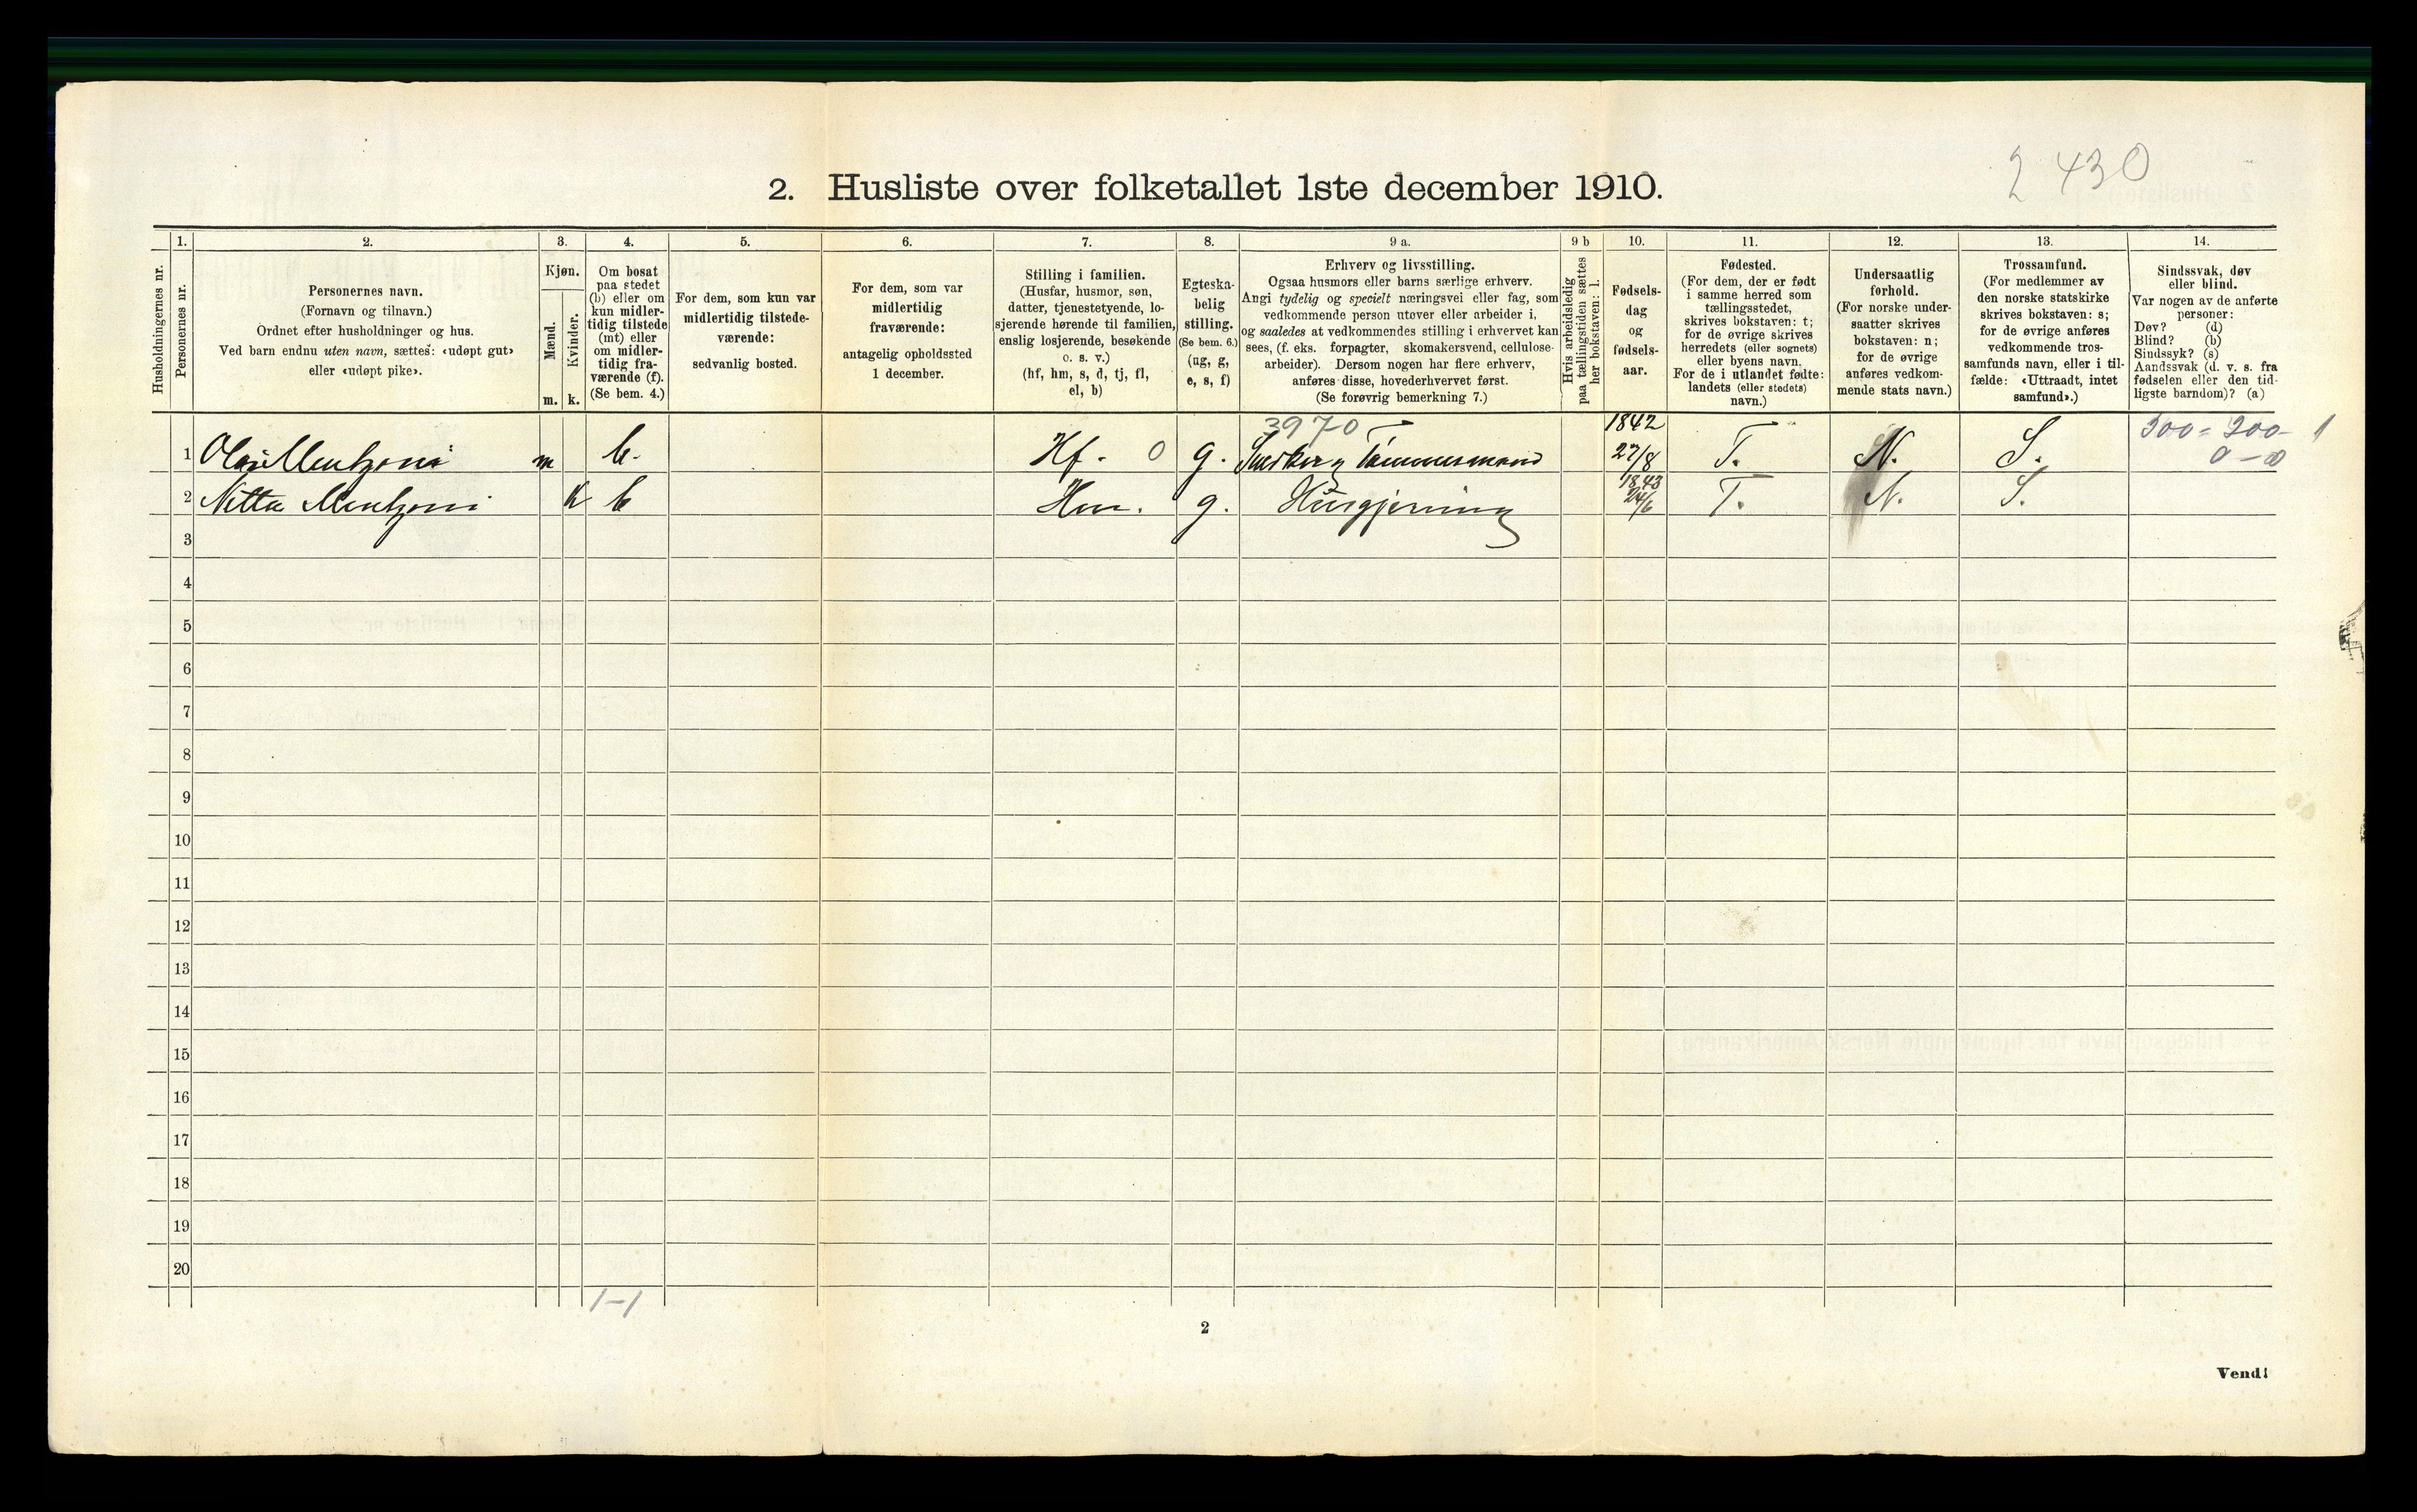 2 430
2. Husliste over folketallet 1ste december 1910.
Husholdningernes nr.
1. Personernes nr.
2.
Personernes navn.
(Fornavn og tilnavn.)
Ordnet efter husholdninger og hus.
Ved barn endnu uten navn, sættes: «udøpt gut»
eller «udøpt pike».
3.
Kjøn.
Mænd. Kvinder.
m. k.
4.
Om bosat
paa stedet
(b) eller om
kun midler-
tidig tilstede
(mt) eller
om midler-
tidig fra-
værende (f).
(Se bem. 4.)
5.
For dem, som kun var
midlertidig tilstede-
værende:
sedvanlig bosted.
6.
For dem, som var
midlertidig
fraværende:
antagelig opholdssted
1 december.
7.
Stilling i familien.
(Husfar, husmor, søn,
datter, tjenestetyende, lo-
sjerende hørende til familien,
enslig losjerende, besøkende
o. s. v.)
(hf, hm, s, d, tj, fl,
el, b)
8.
Egteska-
belig
stilling.
(Se bem. 6.)
(ug, g,
e, s, f)
9 a.
Erhverv og livsstilling.
Ogsaa husmors eller barns særlige erhverv.
Angi tydelig og specielt næringsvei eller fag, som
vedkommende person utøver eller arbeider i,
og saaledes at vedkommendes stilling i erhvervet kan
sees, (f. eks. forpagter, skomakersvend, cellulose-
arbeider). Dersom nogen har flere erhverv,
anføres disse, hovederhvervet først.
(Se forøvrig bemerkning 7.)
9 b
Hvis arbeidsledig
paa tællingstiden sættes
her bokstaven: l.
10.
Fødsels-
dag
og
fødsels-
aar.
11.
Fødested.
(For dem, der er født
i samme herred som
tællingsstedet,
skrives bokstaven: t;
for de øvrige skrives
herredets (eller sognets)
eller byens navn.
For de i utlandet fødte:
landets (eller stedets)
navn.)
12.
Undersaatlig
forhold.
(For norske under-
saatter skrives
bokstaven: n;
for de øvrige
anføres vedkom-
mende stats navn.)
13.
Trossamfund.
(For medlemmer av
den norske statskirke
skrives bokstaven: s;
for de øvrige anføres
vedkommende tros-
samfunds navn, eller i til-
fælde: «Uttraadt, intet
samfund».)
14.
Sindssvak, døv
eller blind.
Var nogen av de anførte
personer:
Døv? (d)
Blind? (b)
Sindssyk? (s)
Aandssvak (d. v. s. fra
fødselen eller den tid-
ligste barndom)? (a)
3970 1842 300 = 200 - 1
1 Mentzoni m b. Hf. 0 g. Tømmermand 27/8 T. N. S. 0 - 0
1843
2 Netta Mentzoni K b Hm. g. Husgjerning 24/6 T. N. S.
3
4
5
6
7
8
9
10
11
12
13
14
15
16
17
18
19
20
1-1
2
Vend!